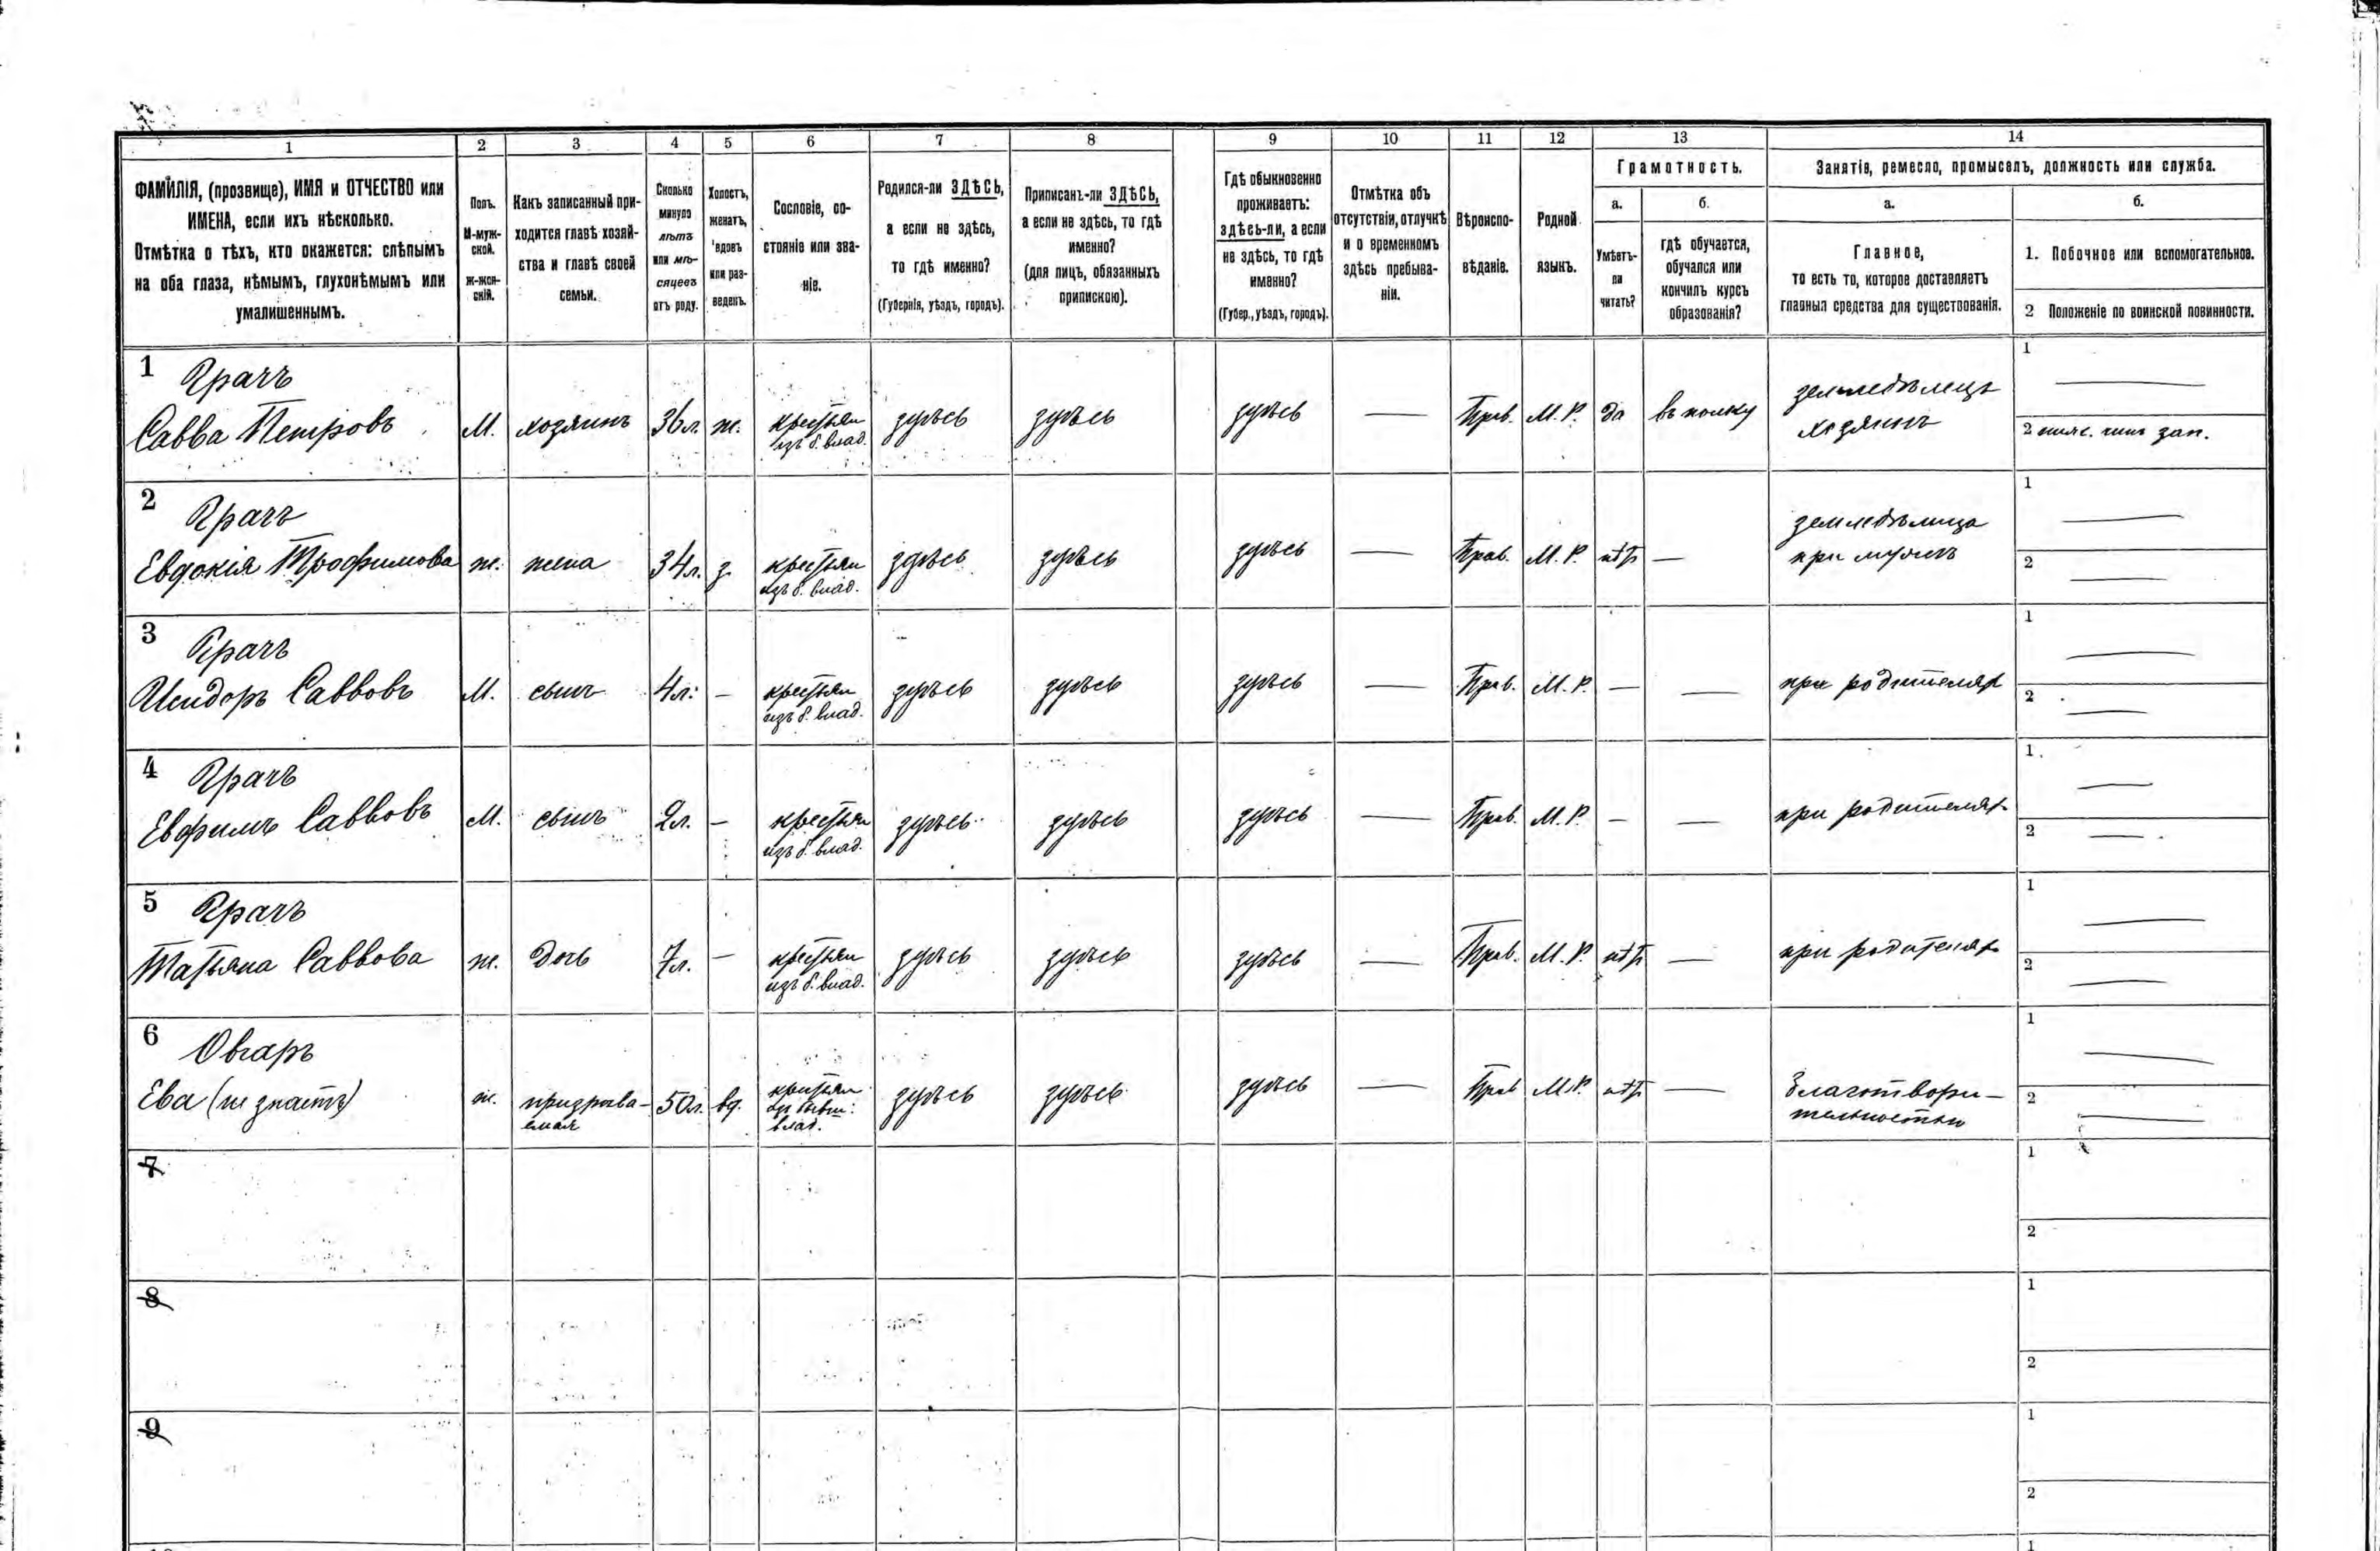 1 2 3 4 5 6 7 8 9 10 11 12 13 14
ФАМИЛІЯ, (прозвище), ИМЯ и ОТЧЕСТВО или
ИМЕНА, если ихъ нѣсколько.
Отмѣтка о тѣхъ, кто окажется: слѣпымъ
на оба глаза, нѣмымъ, глухонѣмымъ или
умалишеннымъ.
Полъ.
М-муж-
ской.
ж-жен-
скій.
Какъ записанный при-
ходится главѣ хозяй-
ства и главѣ своей
семьи.
Сколько
минуло
лѣтъ
или мѣ-
сяцевъ
отъ роду.
Холостъ,
женатъ,
вдовъ
или раз-
веденъ.
Сословіе, со-
стояніе или зва-
ніе.
Родился-ли ЗДѢСЬ,
а если не здѣсь,
то гдѣ именно?
(Губернія, уѣздъ, городъ).
Приписанъ-ли ЗДѢСЬ,
а если не здѣсь, то гдѣ
именно?
(для лицъ, обязанныхъ
припискою).
Гдѣ обыкновенно
проживаетъ:
здѣсь-ли, а если
не здѣсь, то гдѣ
именно?
(Губер., уѣздъ, городъ).
Отмѣтка объ
отсутствіи, отлучкѣ
и о временномъ
здѣсь пребыва-
ніи.
Вѣроиспо-
вѣданіе.
Родной
языкъ.
Грамотность.
а.
Умѣетъ-
ли
читать?
б.
гдѣ обучается,
обучался или
кончилъ курсъ
образованія?
Занятія, ремесло, промыселъ, должность или служба.
а.
Главное,
то есть то, которое доставляетъ
главныя средства для существованія.
б.
1. Побочное или вспомогательное.
2 Положеніе по воинской повинности.
1 Грачъ
Савва Петровъ
М.
хозяинъ
36 л.
ж.
крестьян
изъ б. влад.
здѣсь
здѣсь
здѣсь
—
Прав.
М. Р.
да
въ полку
земледѣлецъ
хозяинъ
1 —
2 нижн. чинъ зап.
2 Грачъ
Евдокія Трофимова
ж.
жена
34 л.
з.
крестьян
изъ б. влад.
здѣсь
здѣсь
здѣсь
—
Прав.
М. Р.
нѣтъ
—
земледѣлица
при мужѣ
1 —
2 —
3 Грачъ
Исидоръ Саввовъ
М.
сынъ
4 л.
—
крестьян
изъ б. влад.
здѣсь
здѣсь
здѣсь
—
Прав.
М. Р.
—
—
при родителях
1 —
2 —
4 Грачъ
Евфимъ Саввовъ
М.
сынъ
2 л.
—
крестьян
изъ б. влад.
здѣсь
здѣсь
здѣсь
—
Прав.
М. Р.
—
—
при родителях
1 —
2 —
5 Грачъ
Татьяна Саввова
ж.
дочь
7 л.
—
крестьян
изъ б. влад.
здѣсь
здѣсь
здѣсь
—
Прав.
М. Р.
нѣтъ
—
при родителях
1 —
2 —
6 Овчаръ
Ева (не знаетъ)
ж.
призрѣва-
емая
50 л.
вд.
крестьян
изъ бывш.
влад.
здѣсь
здѣсь
здѣсь
—
Прав
М. Р.
нѣтъ
—
благотвори-
тельностью
1 —
2 —
7
1
2
8
1
2
9
1
2
1